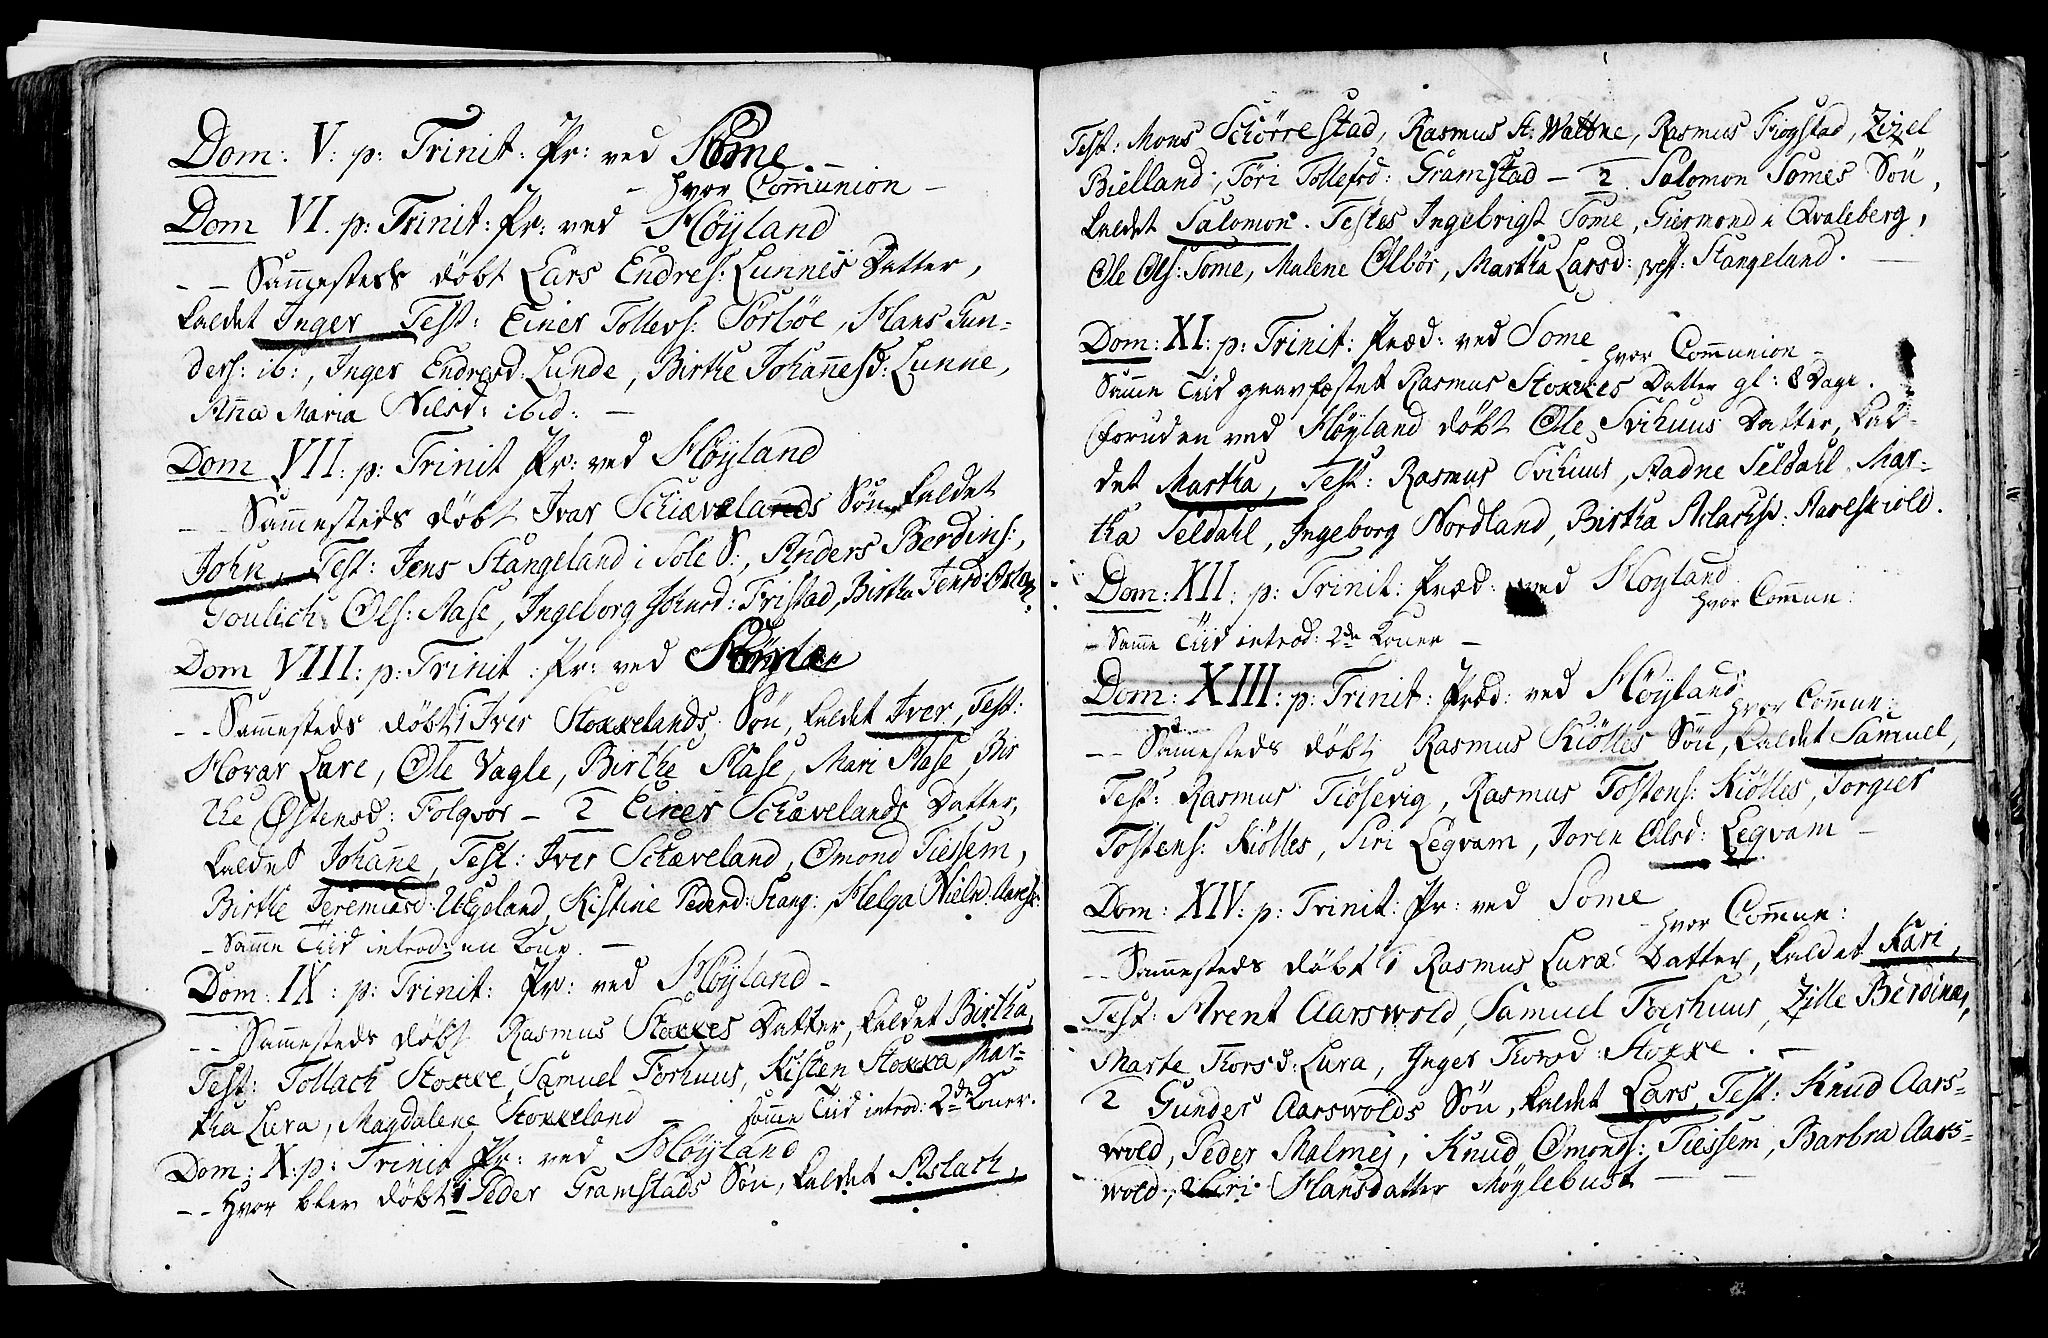 Dom: V: p: Trinit: Pr: ved Some. –
– hvor Com̅union –
Dom VI. p: Trinit: Pr: ved Höyland
– – Sam̅esteds döbt Lars Endres: Lunnes Datter,
kaldet Inger Test: Einer Tollevs: Sörböe, Hans Gun-
ders: ib:, Inger Endresd: Lunde, Birthe Johan̅esd: Lunne,
An̅a Maria Nilsd: ibid: –
Dom VII: p: Trinit Pr: ved Höyland
– – Sam̅esteds döbt Ivar Schiævelands Sön kaldet
John, Test: Jens Stangeland i Sole S:, Anders Berdins:,
Goulich Ols: Aase, Ingeborg Johnsd: Fristad, Birtha Jensd:
Dom VIII: p: Trinit: Pr: ved
– – Sam̅esteds döbt 1 Iver Stokkelands Sön, kaldet Iver, Test:
Hovar Lare, Ole Vagle, Birthe Aase, Mari Aase, Bir
the Östensd: Folqvor – 2 Einer Schævelands Datter,
kaldet Johan̅e, Test: Iver Schæveland, Omond Tiessem,
Birthe Jeremiasd: Uegeland, Kistine Pedersd: Stang:, Helga Nielsd: Aaresk:
– Sam̅e Tiid introd: en Kone. –
Dom: IX: p: Trinit: Pr: ved Höyland –
– – Sam̅esteds döbt Rasmus Stokkes Datter, kaldet Birtha,
Test: Tollach Stokke, Samuel Forhuus, Kisten Stokka, Mar-
tha Lura, Magdalene Stokkeland – sam̅e Tiid introd: 2de Koner.
Dom: X: p: Trinit Pr: ved Höyland
– – hvor blev döbt 1 Peder Gramstads Sön, kaldet Aslach,
Test: Mons Schörrestad, Rasmus St: Wattne, Rasmus Fiogstad, Zizel
Bielland, Töri Tollefsd: Gramstad – 2 Salomon Somes Sön,
kaldet Salomon. Testes Ingebrigt Some, Giermond Qvaleberg,
Ole Ols: Some, Malene Olbör, Martha Larsd: vest: Stangeland. –
Dom: XI: p: Trinit: Præd: ved Some
– hvor Com̅union –
Sam̅e Tiid gravfæstet Rasmus Stokkes Datter gl: 8 Dage.
foruden ved Höyland döbt Ole Svihuus Datter, kal-
det Martha, Test: Rasmus Svihuus, Aadne Seldahl, Mar-
tha Seldahl, Ingeborg Nordland, Birtha Aslachsd: Aareskiold.
Dom: XII: p: Trinit: Præd: ved Höyland
hvor Com̅un:
– Sam̅e Tiid introd: 2de Koner –
Dom: XIII: p: Trinit: Præd: ved Höyland
hvor Com̅un:
– – Sam̅esteds döbt Rasmus Kiölles Sön, kaldet Samuel,
Test: Rasmus Tiösevig, Rasmus Tostens: Kiölles, Torgier
Tostens: Kiölles, Siri Legvam, Joren Olsd: Legvam –
Dom: XIV: p: Trinit: Pr: ved Some
– hvor Com̅un:
– – Sam̅esteds döbt 1 Rasmus Luræ Datter, kaldet Kari,
Test: Arent Aarswold, Samuel Forhuus, Zille Berdines,
Marte Thorsd: Lura, Inger Thorsd: Stokke. –
2 Gunder Aarswolds Sön, kaldet Lars, Test: Knud Aars-
wold, Peder Malmei, Knud Omonds: Tiessem, Barbra Aars-
wold, Siri Hansdatter Möylebust – –